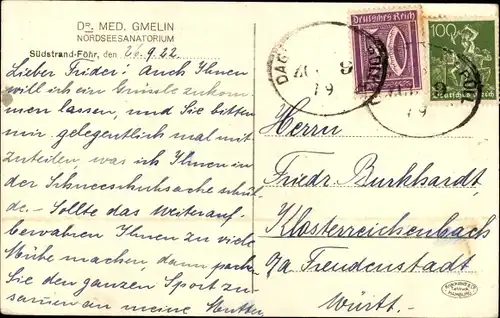 DR. MED. GMELIN
NORDSEESANATORIUM
Südstrand-Föhr, den 26.9.22
Lieber Frieder! Auch Ihnen
will ich ein Grüssle zukom-
men lassen, und Sie bitten
mir gelegentlich mal mit-
zuteilen, was ich Ihnen in
der Schneeschuhsache schul-
de. – Sollte das Weiterauf-
bewahren Ihnen zu viele
Mühe machen, dann packen
Sie den ganzen Sport zu-
samen an meine Mutter
Deutsches Reich
10
100
Deutsches Reich
Herrn
Friedr. Burkhardt,
Klosterreichenbach
o/a. Freudenstadt
Württ.-